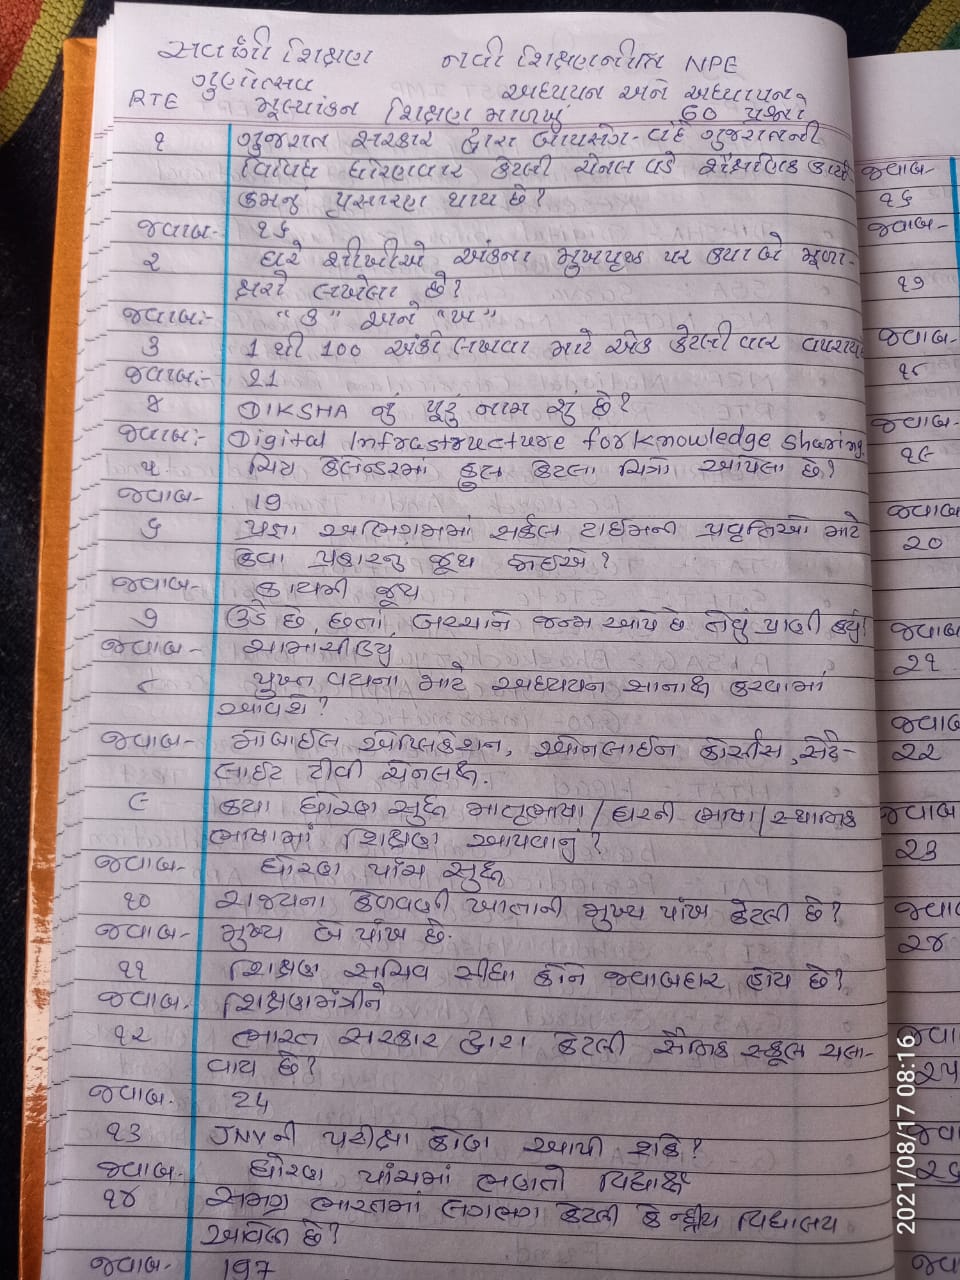 સવર્ગી શિક્ષણ નવી શિક્ષણનીતિ NPE
ગુણોત્સવ અધ્યયન અને અધ્યાપન
RTE મૂલ્યાંકન શિક્ષણ માળખું 60 પ્રશ્નો
૧ ગુજરાત સરકાર દ્વારા બાયસેગ-વંદે ગુજરાતની
વિવિધ ધોરણવાર કેટલી ચેનલ વડે શૈક્ષણિક કાર્ય-
ક્રમનું પ્રસારણ થાય છે?
જવાબ- ૧૬
૨ ઘરે શીખીએ અંકના મુખપૃષ્ઠ પર ક્યા બે મૂળા-
ક્ષરો લખેલા છે?
જવાબ:- "ક" અને "ખ"
૩ 1 થી 100 અંકો લખવા માટે એક કેટલી વાર વપરાય
જવાબ:- 21
૪ DIKSHA નું પૂરું નામ શું છે?
જવાબ:- Digital Infrastructure for Knowledge sharing
૫ ચિત્ર કેલેન્ડરમાં કુલ કેટલા ચિત્રો આપેલા છે?
જવાબ- 19
૬ પ્રજ્ઞા અભિગમમાં સર્કલ ટાઈમની પ્રવૃત્તિઓ માટે
કેવા પ્રકારનું જૂથ જોઈએ?
જવાબ- કાયમી જૂથ
૭ ઉડે છે, છતાં બચ્ચાને જન્મ આપે છે તેવું પ્રાણી કયું?
જવાબ- ચામાચીડિયું
૮ પુખ્ત વયના માટે અધ્યયન કરવામાં
આવશે?
જવાબ- મોબાઈલ એપ્લિકેશન, ઓનલાઈન કોર્સીસ, સેટે-
લાઈટ ટીવી ચેનલક્ષ.
૯ ક્યા ધોરણ સુધી માતૃભાષા / ઘરની ભાષા / સ્થાનિક
ભાષામાં શિક્ષણ આપવાનું?
જવાબ- ધોરણ પાંચ સુધી
૧૦ રાજ્યના કેળવણી ખાતાની મુખ્ય પાંખ કેટલી છે?
જવાબ- મુખ્ય બે પાંખ છે.
૧૧ શિક્ષણ સચિવ સીધા કોને જવાબદાર હોય છે?
જવાબ- શિક્ષણમંત્રીને
૧૨ ભારત સરકાર દ્વારા કેટલી સૈનિક સ્કૂલ ચલા-
વાય છે?
જવાબ- 24
૧૩ JNV ની પરીક્ષા કોણ આપી શકે?
જવાબ- ધોરણ પાંચમાં ભણતો વિદ્યાર્થી
૧૪ સમગ્ર ભારતમાં લગભગ કેટલી કેન્દ્રીય વિદ્યાલય
આવેલ છે?
જવાબ- 197
જવાબ-
૧૬
જવાબ-
૧૭
જવાબ-
૧૮
જવાબ-
૧૯
જવાબ
૨૦
જવાબ-
૨૧
જવાબ
૨૨
જવાબ
૨૩
જવા
૨૪
જવા
૨૫
જવા
૨૬
જવા
2021/08/17 08:16